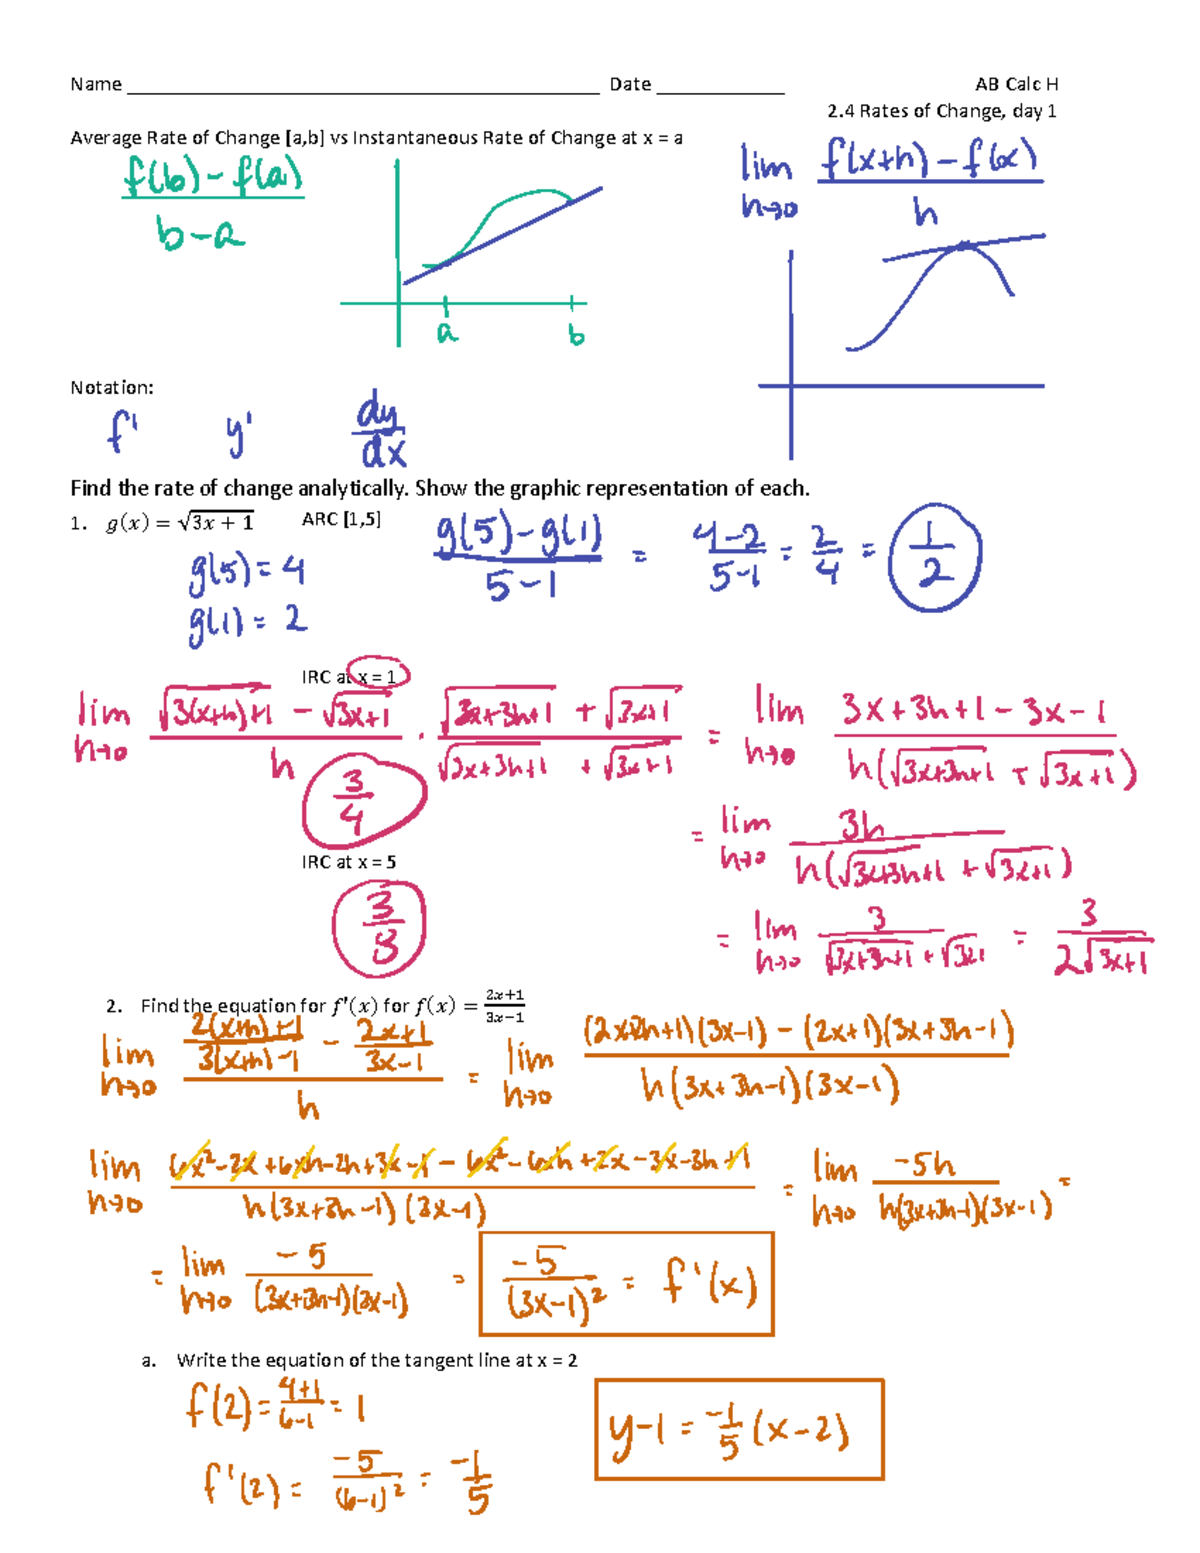 Name ____________ Date ____________ AB Calc H
2.4 Rates of Change, day 1
Average Rate of Change [a,b] vs Instantaneous Rate of Change at x = a
(f(b) - f(a))/(b - a)
lim h→0 (f(x+h) - f(x))/h
a b
Notation:
f' y' dy/dx
Find the rate of change analytically. Show the graphic representation of each.
1. g(x) = √(3x + 1) ARC [1,5]
(g(5) - g(1))/(5 - 1) = (4-2)/(5-1) = 2/4 = 1/2
g(5) = 4
g(1) = 2
IRC at x = 1
lim h→0 (√(3(x+h)+1) - √(3x+1))/h · (√(3x+3h+1) + √(3x+1))/(√(3x+3h+1) + √(3x+1)) = lim h→0 (3x+3h+1-3x-1)/(h(√(3x+3h+1) + √(3x+1)))
3/4
= lim h→0 3h/(h(√(3x+3h+1) + √(3x+1)))
IRC at x = 5
3/8
= lim h→0 3/(√(3x+3h+1) + √(3x+1)) = 3/(2√(3x+1))
2. Find the equation for f'(x) for f(x) = (2x+1)/(3x−1)
lim h→0 ((2(x+h)+1)/(3(x+h)-1) - (2x+1)/(3x-1))/h = lim h→0 ((2x+2h+1)(3x-1) - (2x+1)(3x+3h-1))/(h(3x+3h-1)(3x-1))
lim h→0 (6x²-2x+6xh-2h+3x-1-6x²-6xh+2x-3x-3h+1)/(h(3x+3h-1)(3x-1)) = lim h→0 -5h/(h(3x+3h-1)(3x-1)) =
= lim h→0 -5/((3x+3h-1)(3x-1)) = -5/(3x-1)² = f'(x)
a. Write the equation of the tangent line at x = 2
f(2) = (4+1)/(6-1) = 1
y-1 = -1/5 (x-2)
f'(2) = -5/(6-1)² = -1/5